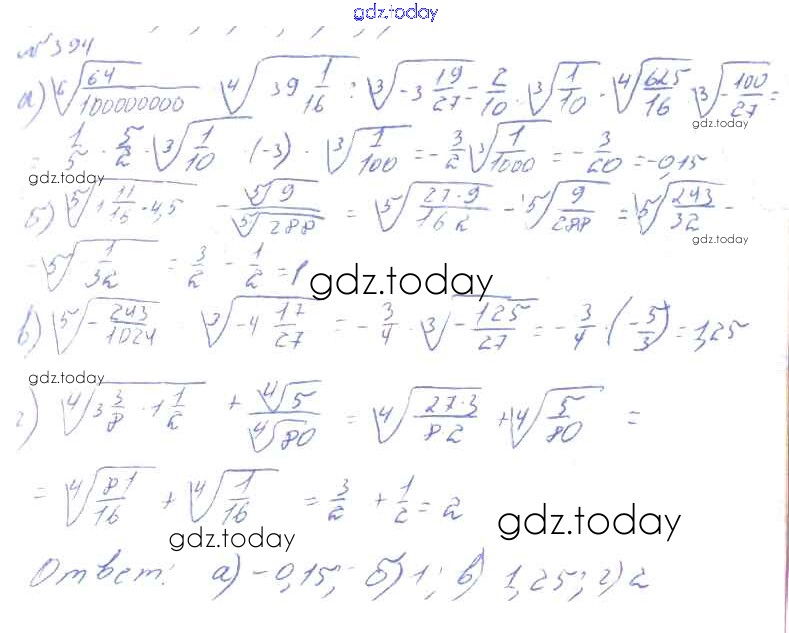 gdz.today
№ 394
а) ⁶√(64/100000000) ⁴√(39 1/16) : ³√(-3 19/27) = 2/10 · ³√(1/10) · ⁴√(625/16) · ³√(-100/27) =
gdz.today
= 1/5 · 5/2 · ³√(1/10) · (-3) · ³√(1/100) = -3/2 ³√(1/1000) = -3/20 = -0,15
gdz.today
б) ⁵√(1 11/16 · 4,5) - ⁵√9/⁵√288 = ⁵√(27·9/16·2) - ⁵√(9/288) = ⁵√(243/32) -
gdz.today
- ⁵√(1/32) = 3/2 - 1/2 = 1
gdz.today
в) ⁵√(-243/1024) · ³√(-4 17/27) = -3/4 · ³√(-125/27) = -3/4 · (-5/3) = 1,25
gdz.today
г) ⁴√(3 3/8 · 1 1/2) + ⁴√5/⁴√80 = ⁴√(27·3/8·2) + ⁴√(5/80) =
= ⁴√(81/16) + ⁴√(1/16) = 3/2 + 1/2 = 2
gdz.today
gdz.today
Ответ: а) -0,15; б) 1; в) 1,25; г) 2